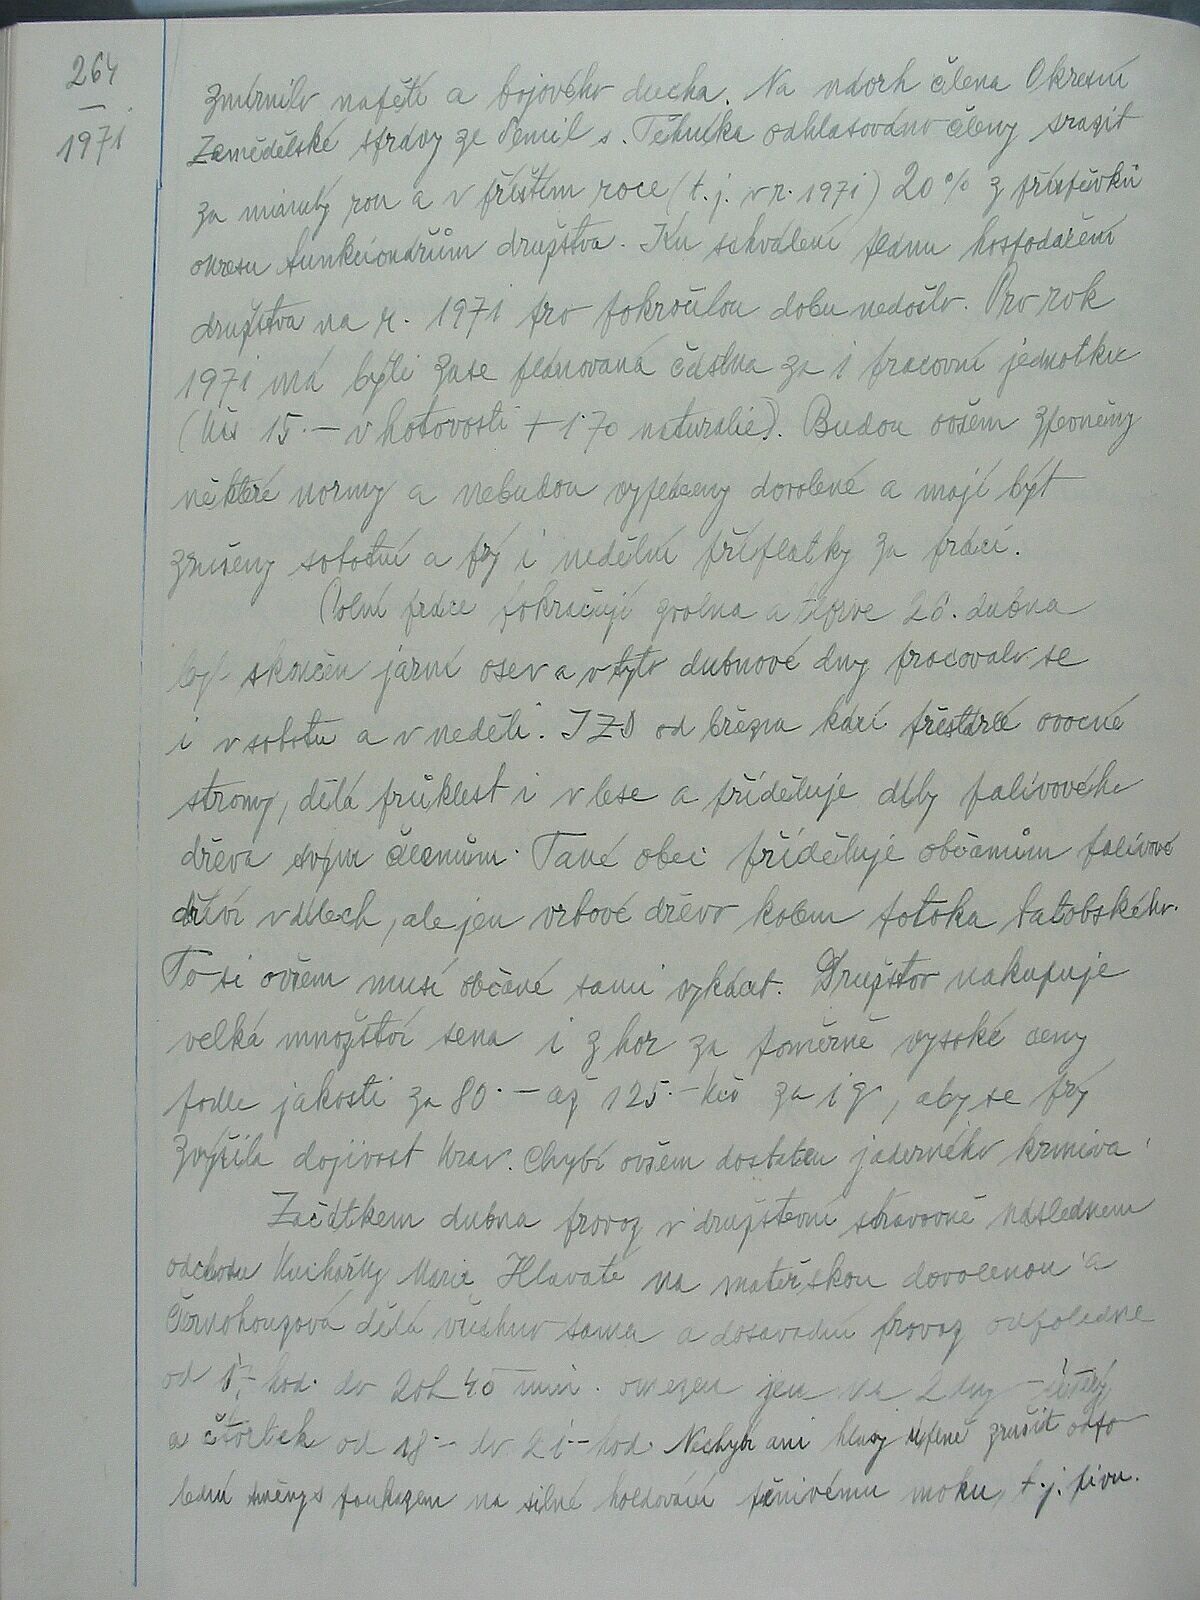 264
1971
zmírnilo napětí a bojového ducha. Na návrh člena Okresní
Zemědělské správy ze Semil s. odhlasováno členy srazit
za minulý rok a v příštím roce (t.j. v r. 1971) 20% z příspěvků
okresu funkcionářům družstva. Ku schválení plánu hospodaření
družstva na r. 1971 pro pokročilou dobu nedošlo. Pro rok
1971 má býti zase plánovaná částka za 1 pracovní jednotku
(Kčs 15.— v hotovosti + 1·70 naturalie). Budou ovšem zpevněny
některé normy a nebudou vypláceny dovolené a mají být
zrušeny sobotní a prý i nedělní příplatky za práci.
Polní práce pokračují zvolna a teprve 26. dubna
byl skončen jarní osev a v tyto dubnové dny pracovalo se
i v sobotu a v neděli. JZD od března kácí přestárlé ovocné
stromy, dělá průklest i v lese a přiděluje díly palivového
dřeva svým členům. Také obec přiděluje občanům palivové
dříví v dílech, ale jen vrbové dřevo kolem potoka Tatobského.
To si ovšem musí občané sami vykácet. Družstvo nakupuje
velká množství sena i z hor za poměrně vysoké ceny
podle jakosti za 80.— až 125.— Kčs za 1 q, aby se prý
zvýšila dojivost krav. Chybí ovšem dostatek jaderného krmiva.
Začátkem dubna provoz v družstevní stravovně následkem
odchodu kuchařky Marie Hlavaté na mateřskou dovolenou a
Černohouzová dělá všechno sama a dosavadní provoz odpoledne
od hod. do 20h 45 min. omezen jen na 2 dny – úterý
a čtvrtek od 18.— do 21.— hod. Nechybí ani hlasy úplně zrušit odpo
lední směny s poukazem na silné holdování pěnivému moku, t.j. pivu.